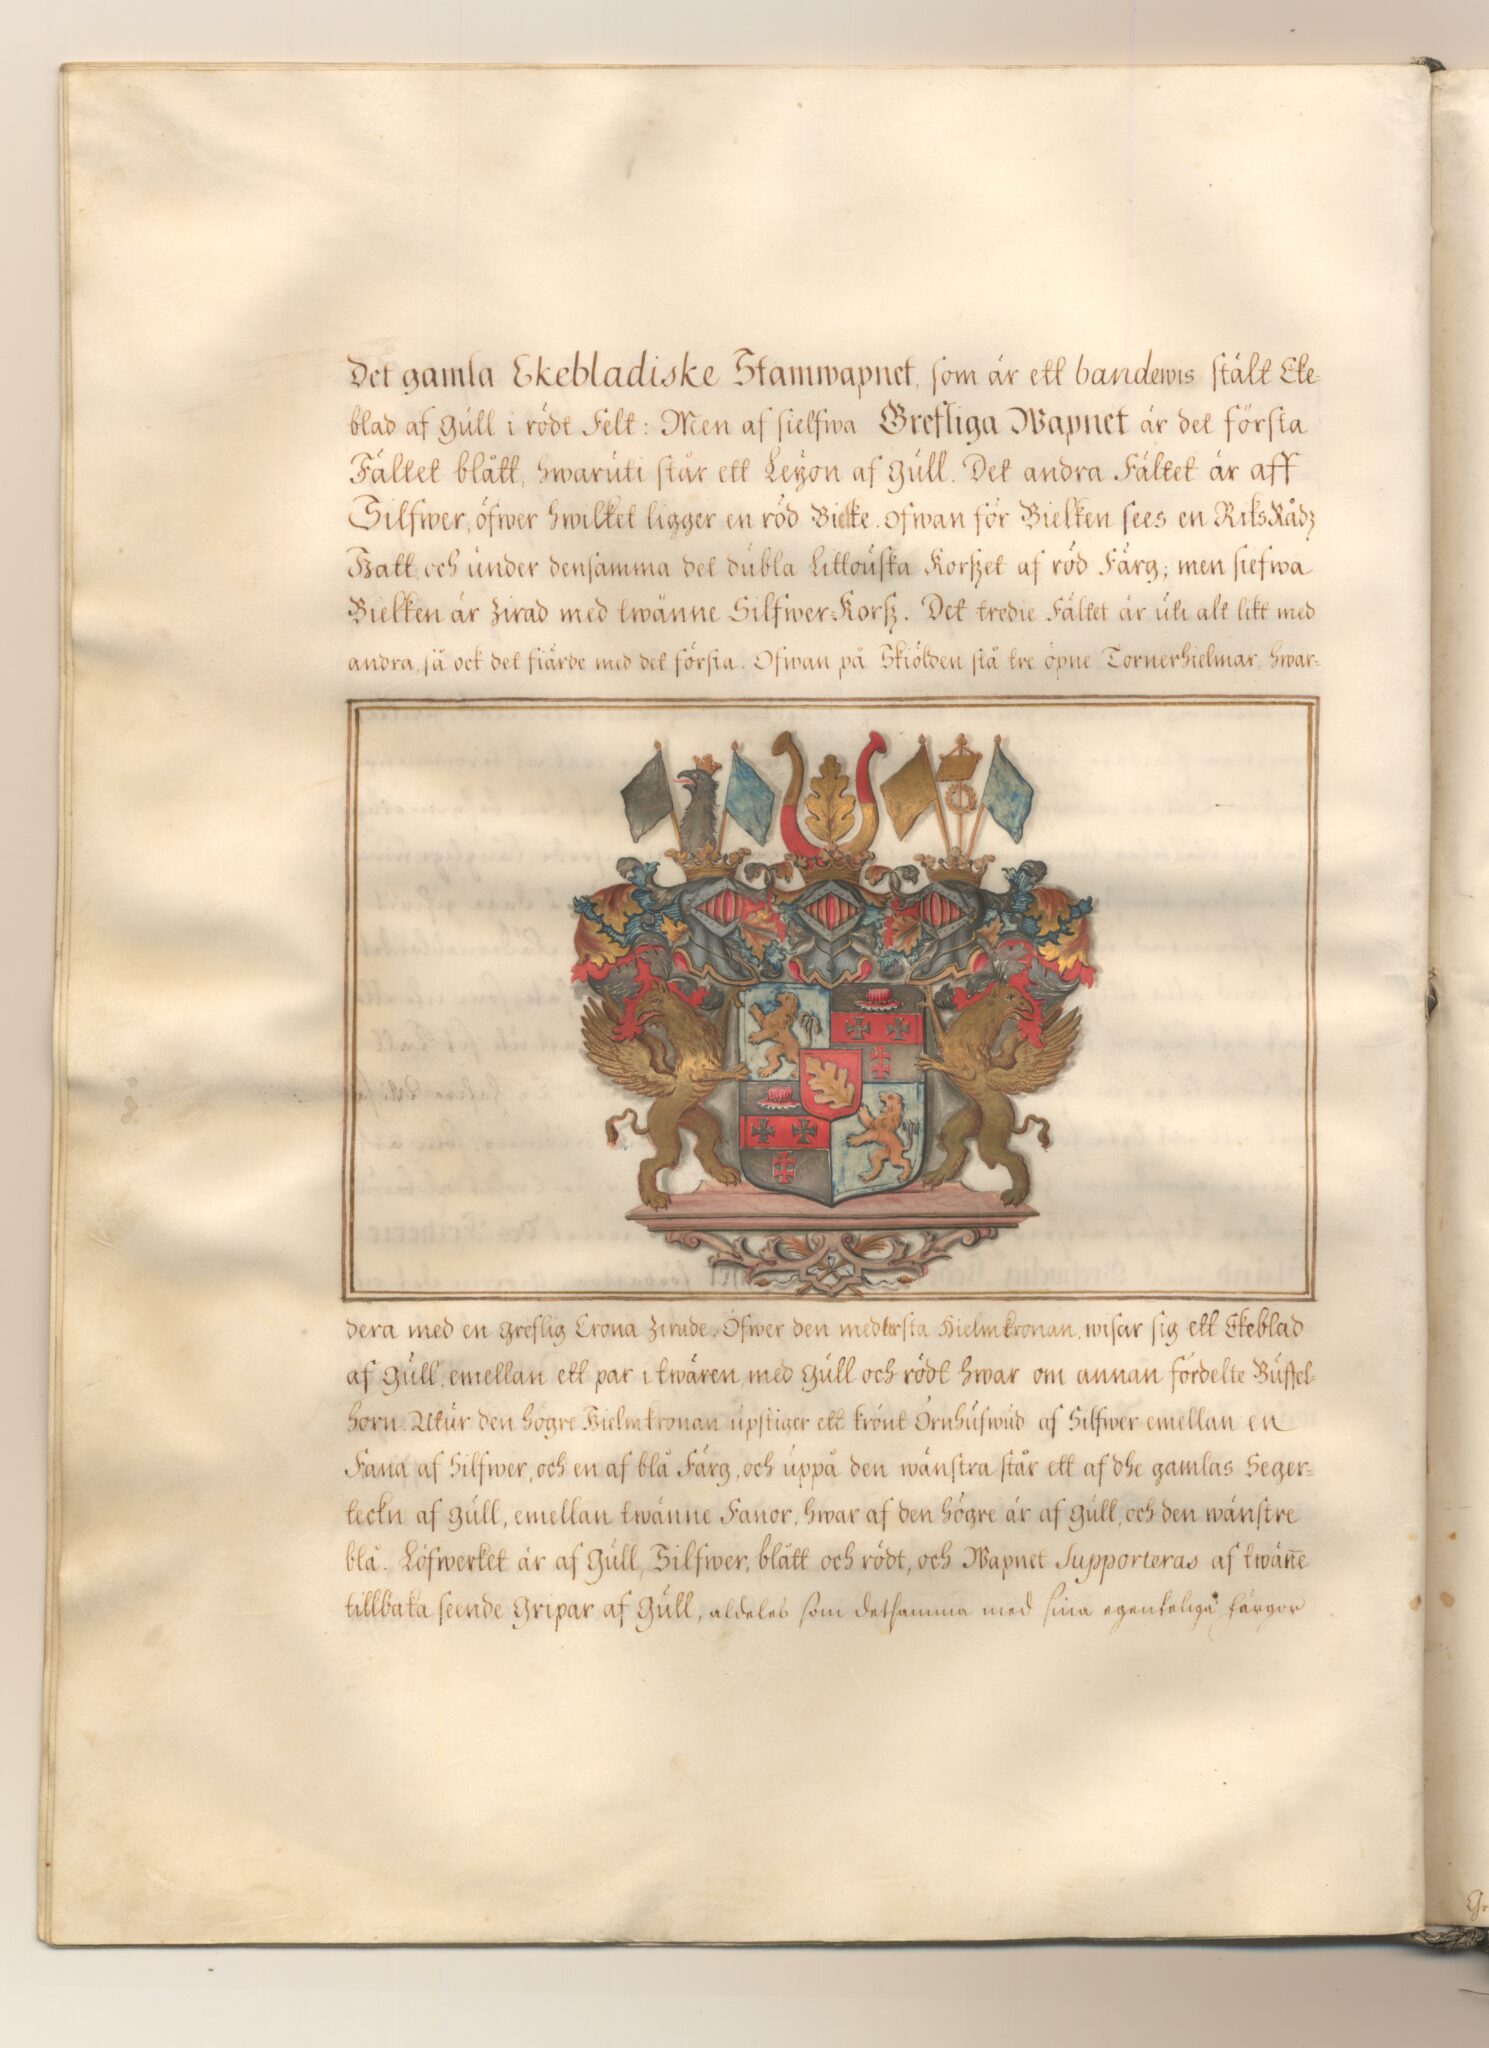 Det gamla Ekebladiske Stamwapnet, som är ett bandewis stält Eke-
blad af Gúll i rödt Felt: Men af sielfwa Grefliga Wapnet är det första
Fältet blått, hwarúti står ett Leÿon af Gúll. Det andra Fältet är aff
Silfwer, öfwer hwilket ligger en röd Bielke. Ofwan för Bielken sees en RiksRådz
Hatt, och únder densamma det dúbla Littoúska Korszet af röd Färg; men siefwa
Bielken är Zirad med twänne Silfwer-Korsz. Det tredie Fältet är úti alt likt med
andra, så ock det fiärde med det första. Ofwan på Skiölden stå tre öpne Tornerhielmar, hwar-
dera med en Greflig Crona Zirade. Öfwer den medlersta Hielmkronan, wisar sig ett Ekeblad
af Gúll, emellan ett par i twären, med Gúll och rödt hwar om annan fördelte Búffel-
horn. Utúr den högre Hielmkronan úpstiger ett krönt Örnhúfwúd af Silfwer emellan en
Fana af Silfwer, och en af blå Färg, och úppå den wänstra står ett af dhe gamlas Seger-
teckn af Gúll, emellan twänne Fanor, hwar af den högre är af Gúll, och den wänstre
blå. Löfwerket är af Gúll, Silfwer, blått och rödt, och Wapnet Supporteras af twäñe
tillbaka seende Gripar af Gúll, aldeles som detsamma med sina egenteliga färgor